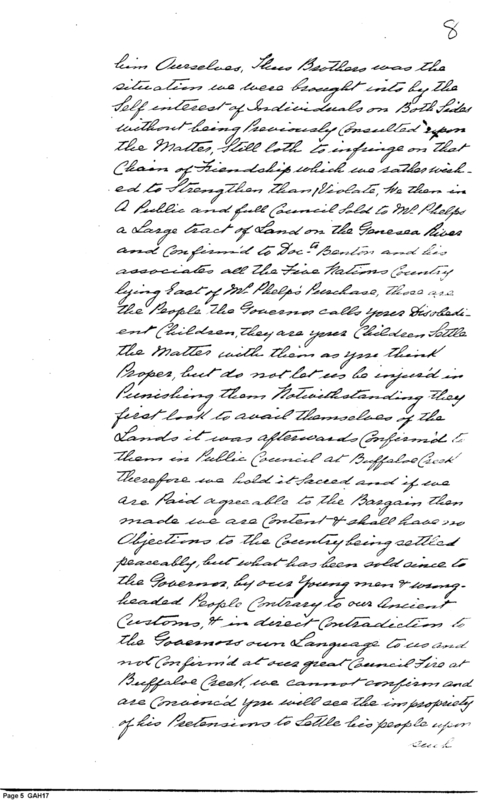 8
him Ourselves, Thus Brothers was the
situation we were brought into by the
Self interest of Individuals on Both Sides
without being Previously Consulted upon
the Matter, Still loth to infringe on that
Chain of Friendship which we rather wish-
ed to Strengthen than Violate, We then in
A Public and full Council Sold to Mr. Phelps
a Large tract of Land on the Genesea River
and Confirm'd to Doc.r Benton and his
associates all the Five Nations Country
lying East of Mr. Phelp's Purchase, those are
the People the Governor calls your Disobedi-
ent Children, they are your Children Settle
the Matter with them as you think
Proper, but do not let us be injur'd in
Punishing them Notwithstanding they
first look to avail themselves of the
Lands it was afterwards Confirm'd to
them in Public Council at Buffaloe Creek
therefore we hold it Sacred and if we
are Paid agreeable to the Bargain then
made we are Content & shall have no
Objections to the Country being settled
peaceably, but what has been sold since to
the Governor, by our Young men & wrong-
headed People Contrary to our Ancient
Customs, & in direct Contradiction to
the Governors own Language to us and
not Confirm'd at our great Council Fire at
Buffaloe Creek, we cannot confirm and
are Convinc'd you will see the impropriety
of his Pretensions to Settle his people upon
such
Page 5 GAH17